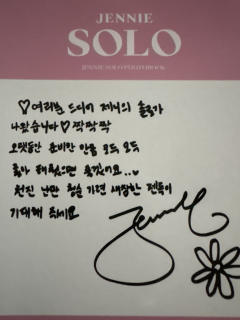 JENNIE
SOLO
JENNIE SOLO PHOTOBOOK
♡여러분 드디어 제니의 솔로가
나왔습니다♡ 짝짝짝
오랫동안 준비한 만큼 모두 모두
좋아 해줬으면 좋겠어요..
천진 난만 청순 가련 새침한 젠득이
기대해 주세요
Jennie